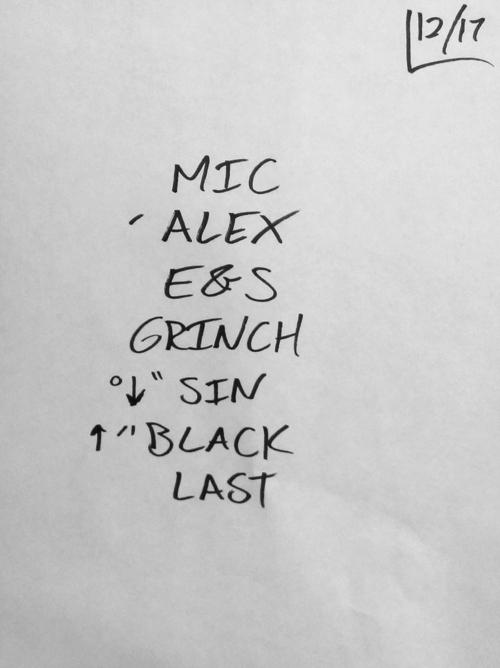 12/17
MIC
' ALEX
E&S
GRINCH
°↓" SIN
↑ '" BLACK
LAST